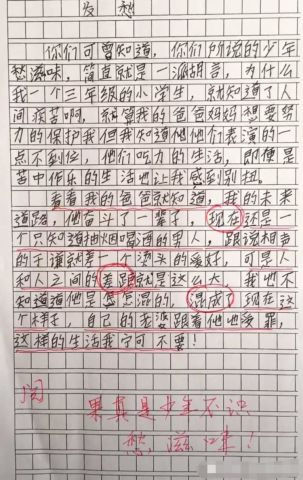 发愁
你们可曾知道，你们所说的少年
愁滋味，简直就是一派胡言，为什么
我一个三年级的小学生，就知道了人
间疾苦啊，纵管我的爸爸妈妈想要努
力的保护我但我知道他们表演的一
点不到位，他们吃力的生活，即便是
苦中作乐的生活也让我感到别扭。
看着我的爸爸就知道，我的未来
道路，他奋斗了一辈子，现在还是一
个只知道抽烟喝酒的男人，跟说相声
的于谦就差一个烫头的爱好，可是人
和人之间的差距就是这么大，我也不
知道道他是怎混的，混成了现在这
个样子，自己的老婆跟着他也受罪，
这样的生活我宁可不要！
阅
果真是少年不识
愁滋味！